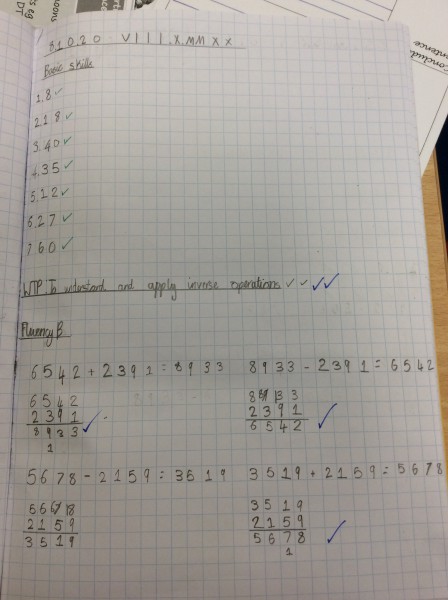 8 1 0. 2 0 V I I I . X . M M X X
Basic skills
1. 8 ✓
2. 1 8 ✓
3. 4 0 ✓
4. 3 5 ✓
5. 1 2 ✓
6. 2 7 ✓
7 6 0 ✓
WTP: To understand and apply inverse operations ✓ ✓ ✓✓
Fluency B
6 5 4 2 + 2 3 9 1 = 8 9 3 3
8 9 3 3 - 2 3 9 1 = 6 5 4 2
6 5 4 2
2 3 9 1
8 9 3 3
1
8 9 8 13 3
2 3 9 1
6 5 4 2
5 6 7 8 - 2 1 5 9 = 3 5 1 9
3 5 1 9 + 2 1 5 9 = 5 6 7 8
5 6 6 7 18
2 1 5 9
3 5 1 9
3 5 1 9
2 1 5 9
5 6 7 8
1